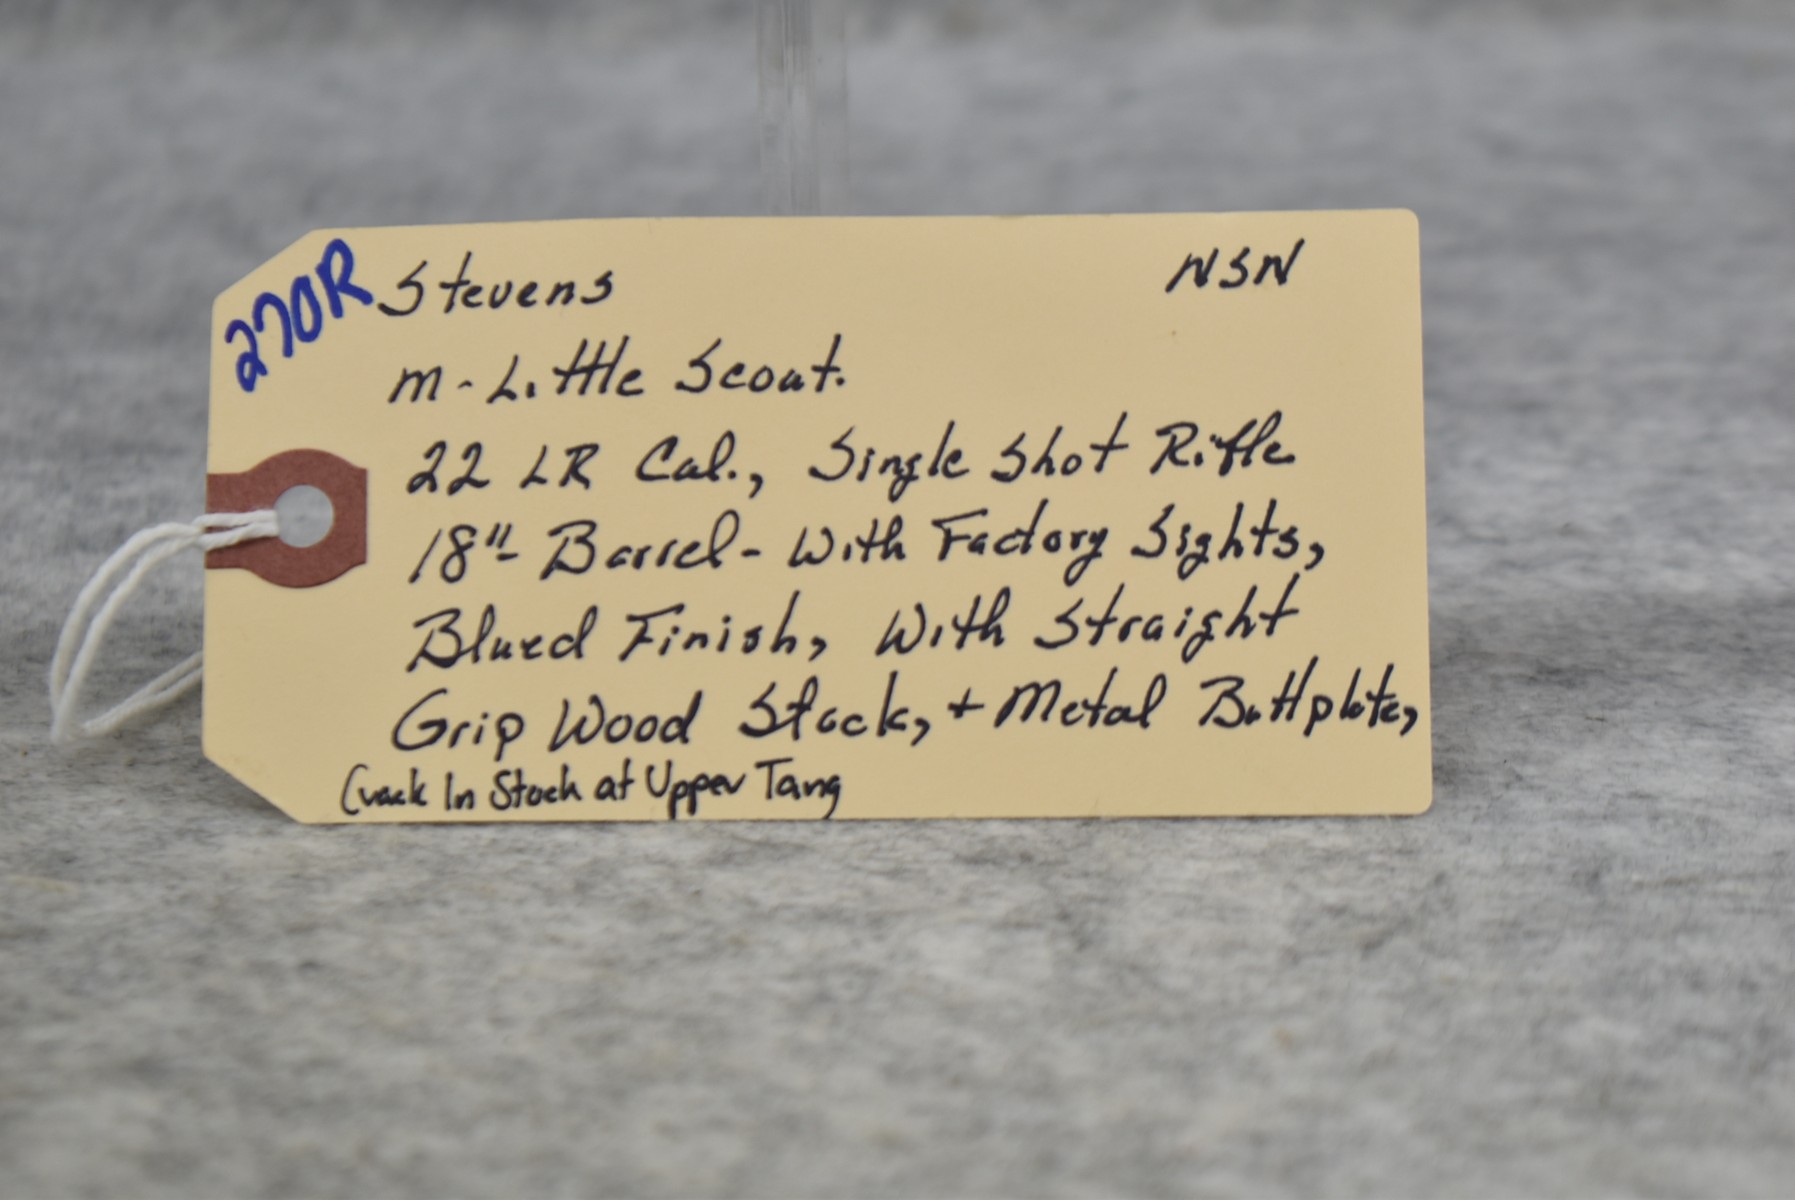 270R
Stevens NSN
M - Little Scout.
22 LR Cal., Single Shot Rifle
18"- Barrel - With Factory Sights,
Blued Finish, With Straight
Grip Wood Stock, + Metal Buttplate,
Crack In Stock at Upper Tang